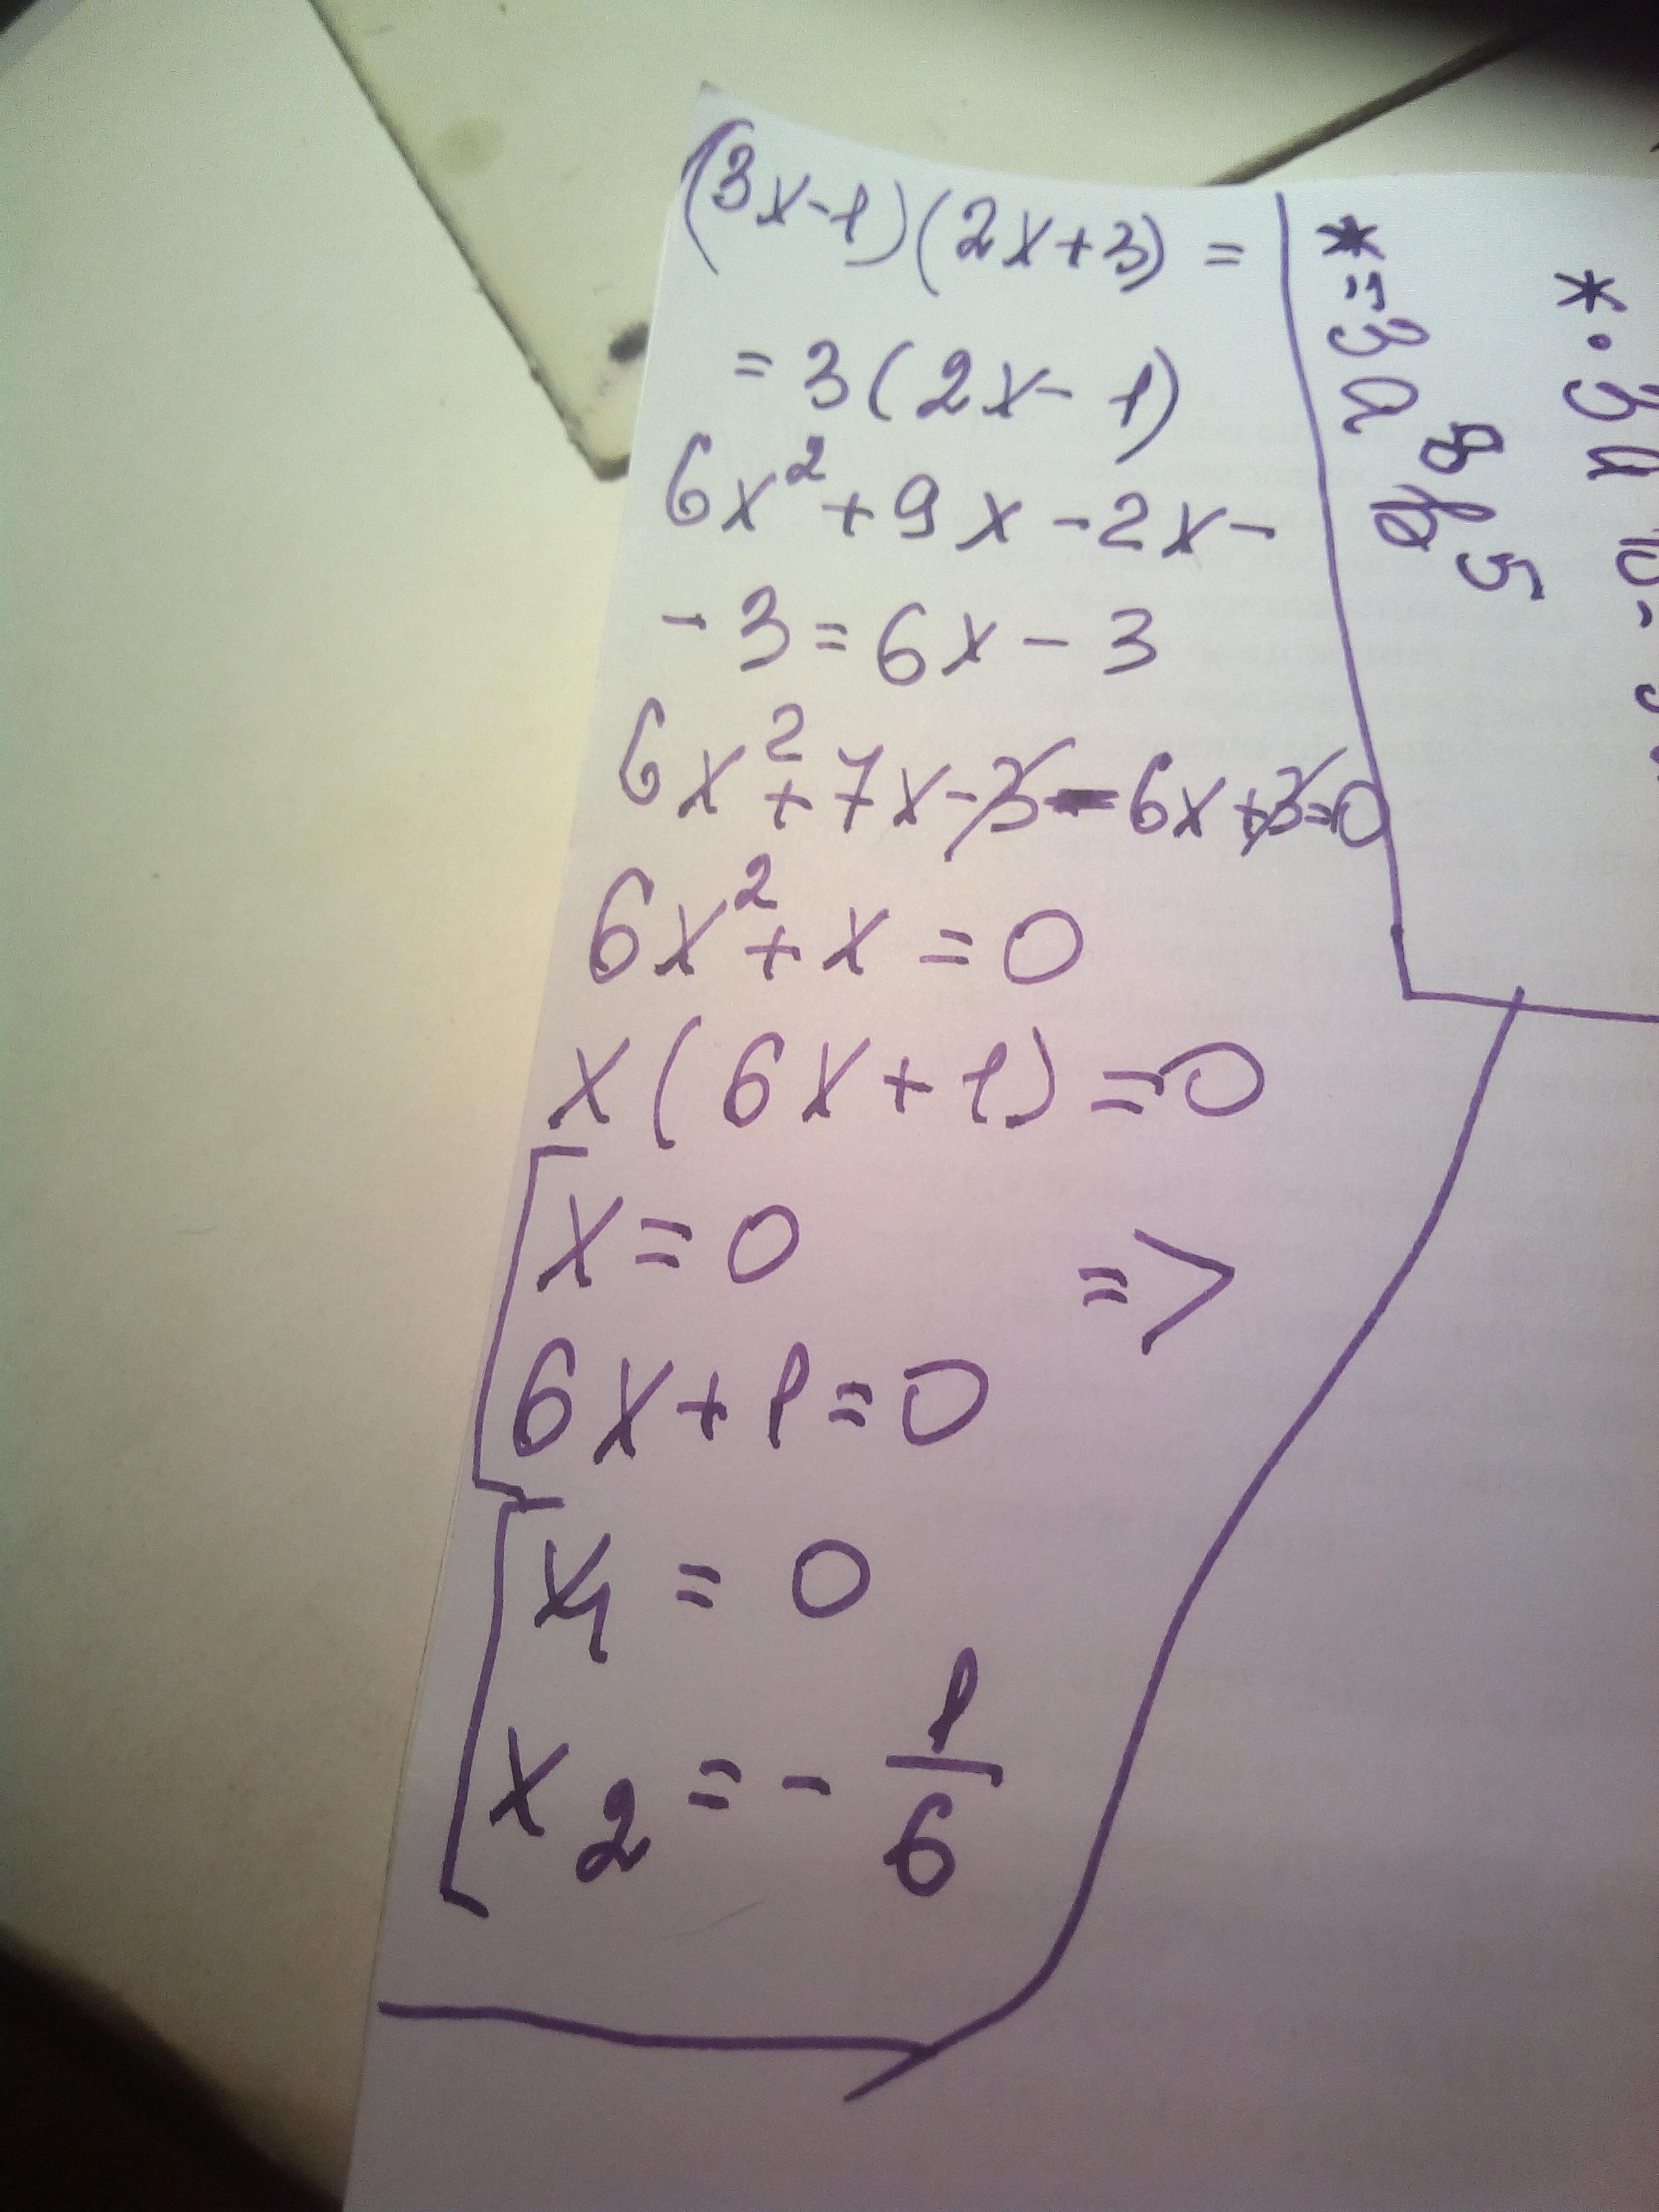 (3x-1)(2x+3) =
= 3(2x-1)
6x²+9x-2x-
-3=6x-3
6x²+7x-3-6x+3=0
6x²+x=0
x(6x+1)=0
x=0 =>
6x+1=0
x₁ = 0
x₂ = - 1/6
* = 3a⁸b⁵
* · 3a